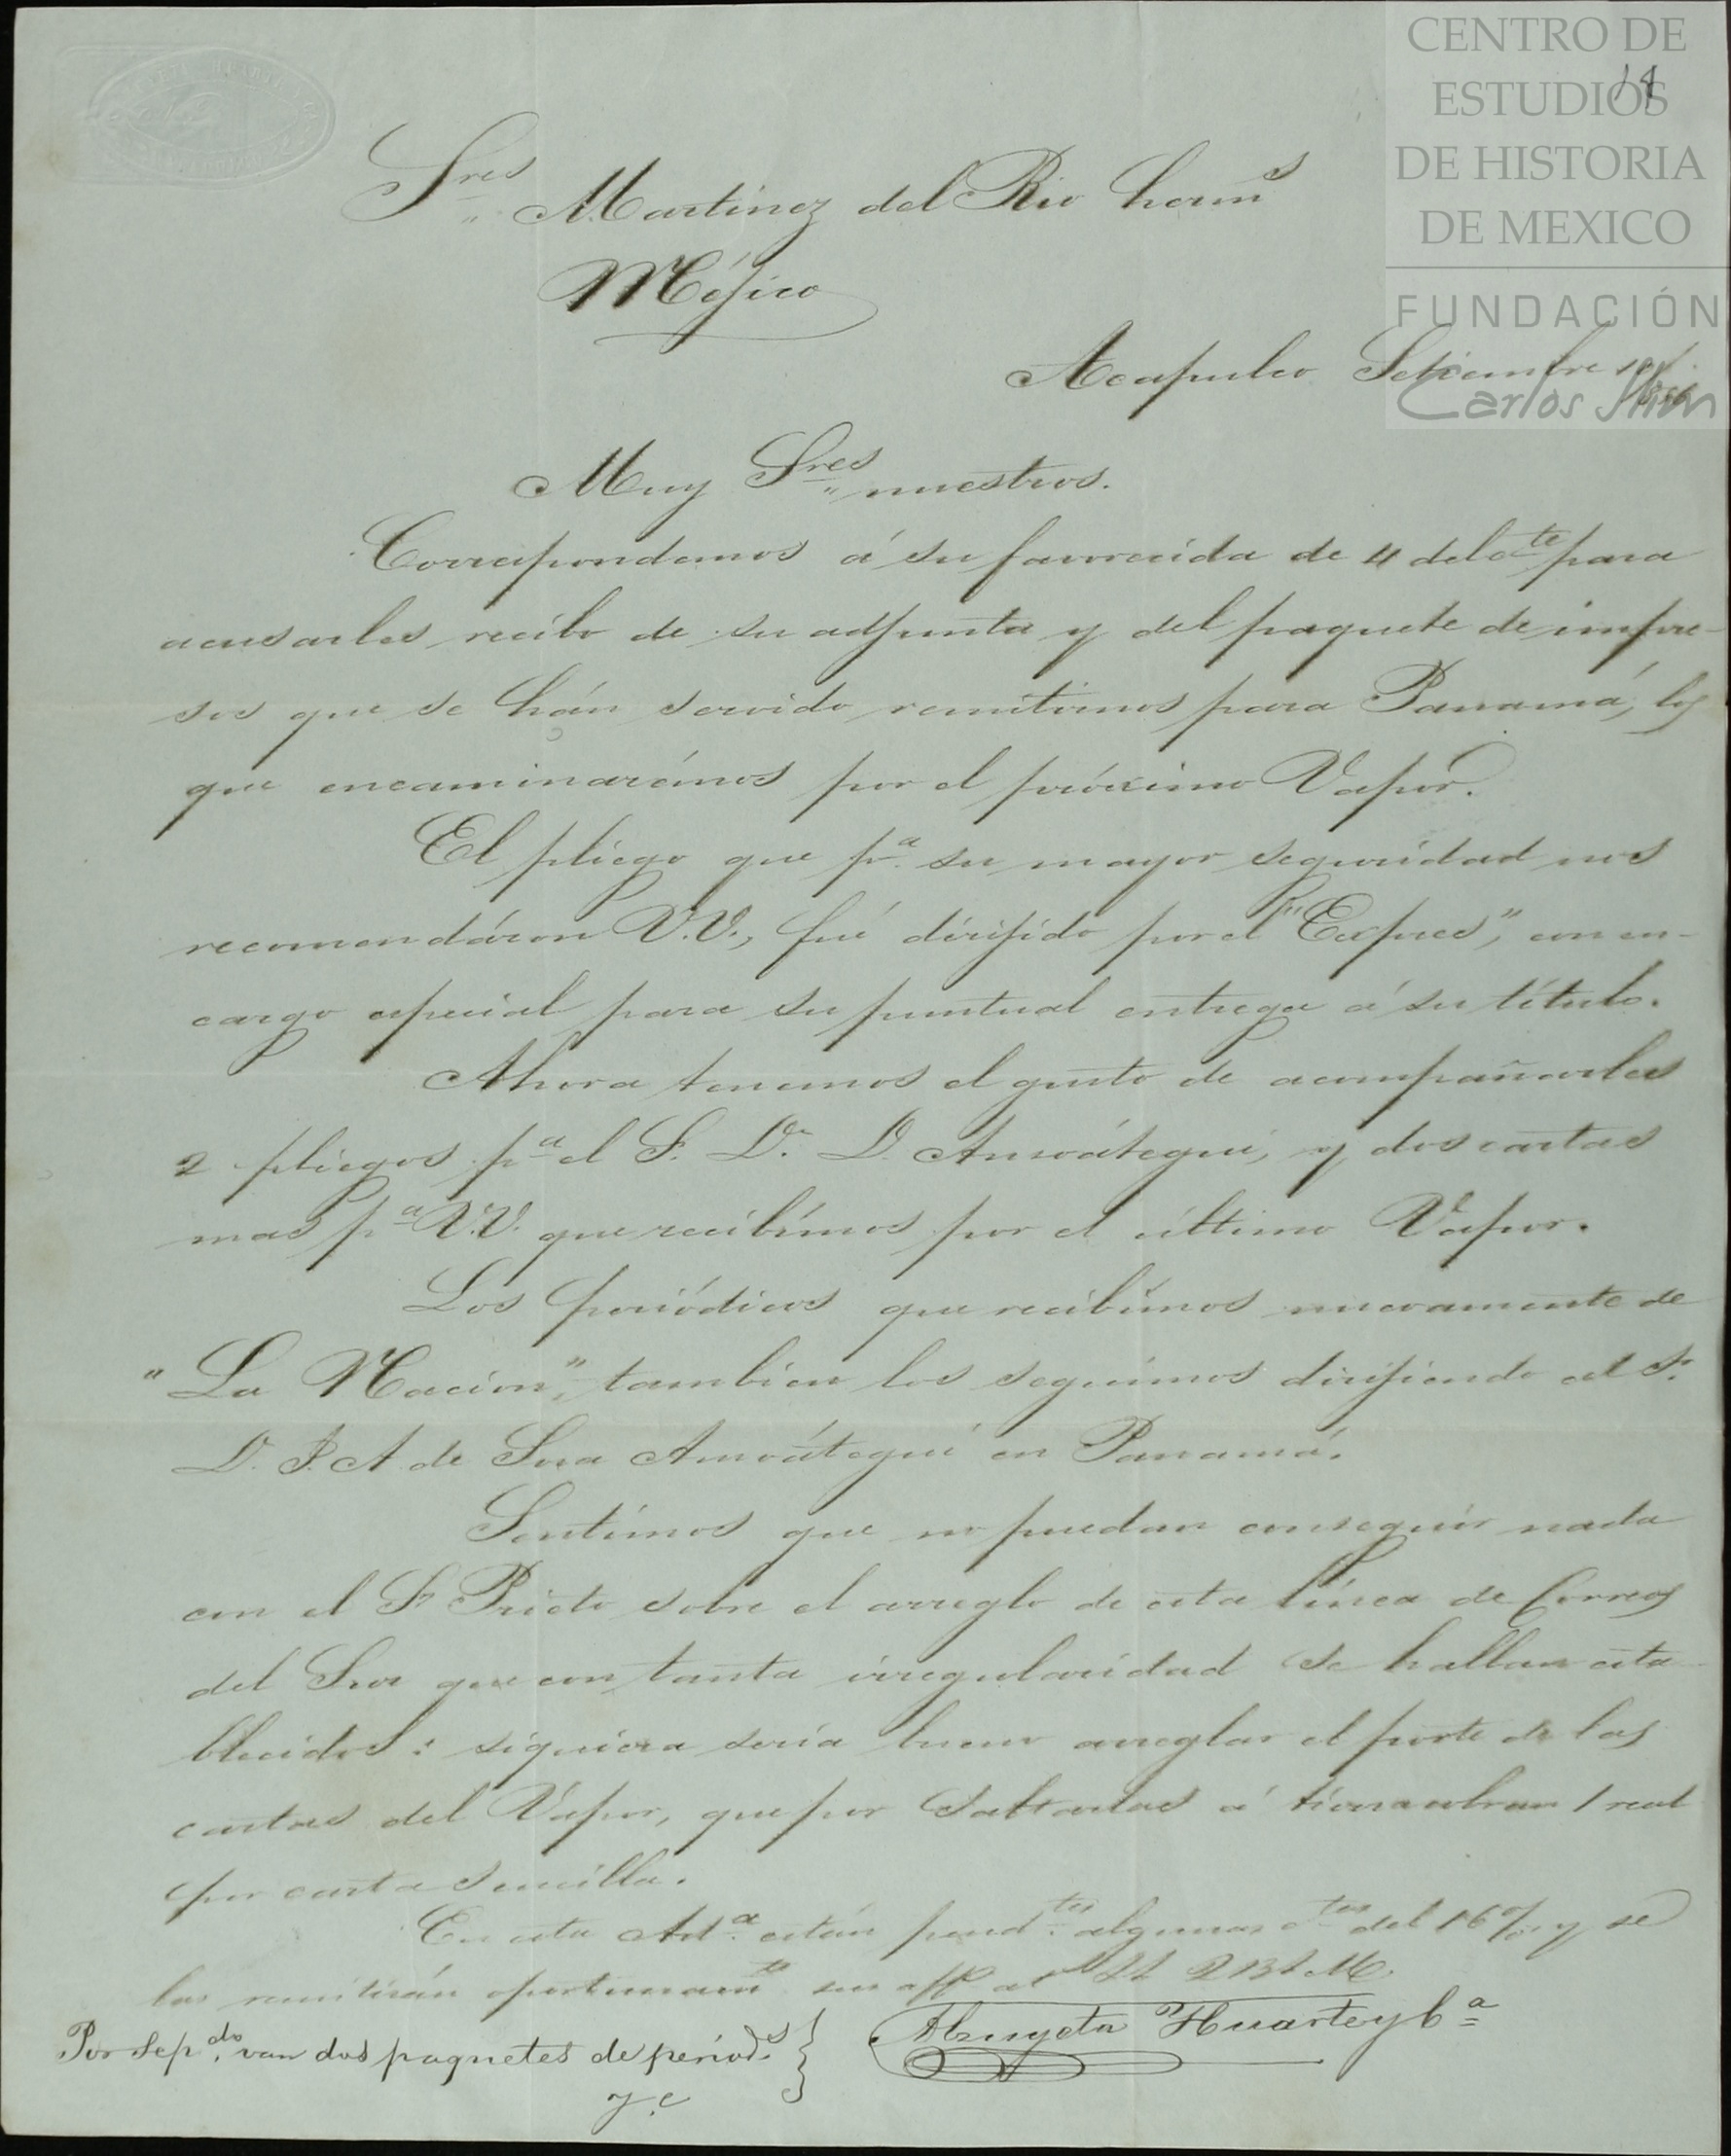 CENTRO DE
ESTUDIOS
DE HISTORIA
DE MEXICO
FUNDACIÓN
Carlos Slim
Sres Martinez del Rio herms
Méjico
Acapulco Setiembre
Muy Sres nuestros.
Correspondemos á su favorecida de 4 del cte para
acusarles recibo de su adjunta y del paquete de impre-
sos que se hán servido remitirnos para Panamá, los
que encaminarémos por el próximo Vapor.
El pliego que pa. su mayor seguridad nos
recomendáron V.V., fué dirijido por el "Expres", con en-
cargo especial para su puntual entrega á su título.
Ahora tenemos el gusto de acompañarles
2 pliegos pa el S. Dr. D. Ansoátegui, y dos cartas
mas pa V.V. que recibímos por el último Vapor.
Los periódicos que recibimos nuevamente de
"La Nacion", tambien los seguimos dirijiendo al Sr.
D. J. A de Sosa Ansoátegui en Panamá.
Sentimos que no puedan conseguir nada
con el Sr. Prieto sobre el arreglo de esta línea de Correos
del Sur que con tanta irregularidad se hallan esta
blecidos: siquiera sería bueno arreglar el porte de las
cartas del Vapor, que por saltarlas á tierra cobran 1 real
por carta sencilla.
En esta Ada. están pendtes. algunas ctas del 16% y se
las remitirán oportunamte sus aff at SS Q B S M.
Abzuyeta Huarte y Ca
Por sepdo. van dos paquetes de periods.